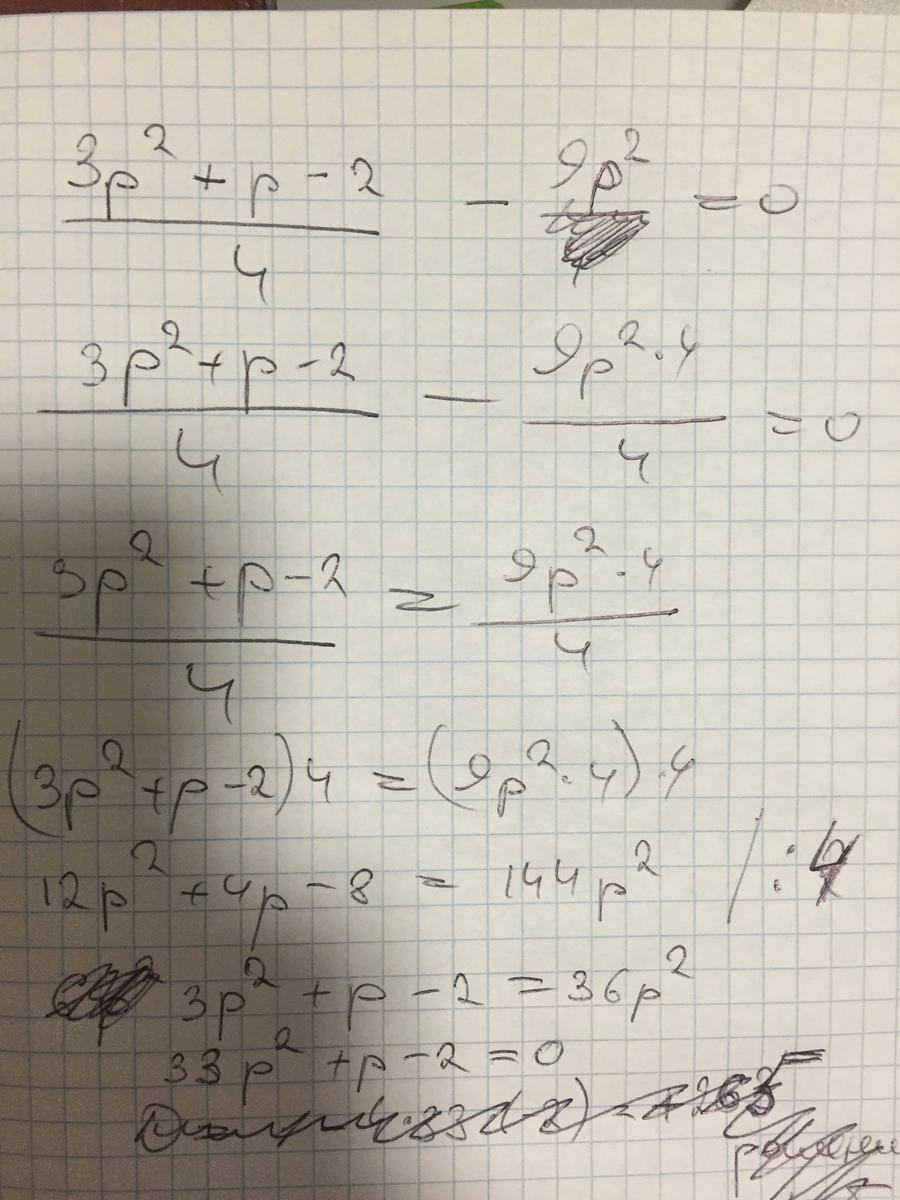 3p² + p - 2 / 4 - 9p² = 0
3p² + p - 2 / 4 - 9p² · 4 / 4 = 0
3p² + p - 2 / 4 = 9p² · 4 / 4
(3p² + p - 2) 4 = (9p² · 4) · 4
12p² + 4p - 8 = 144p² / : 4
3p² + p - 2 = 36p²
33p² + p - 2 = 0